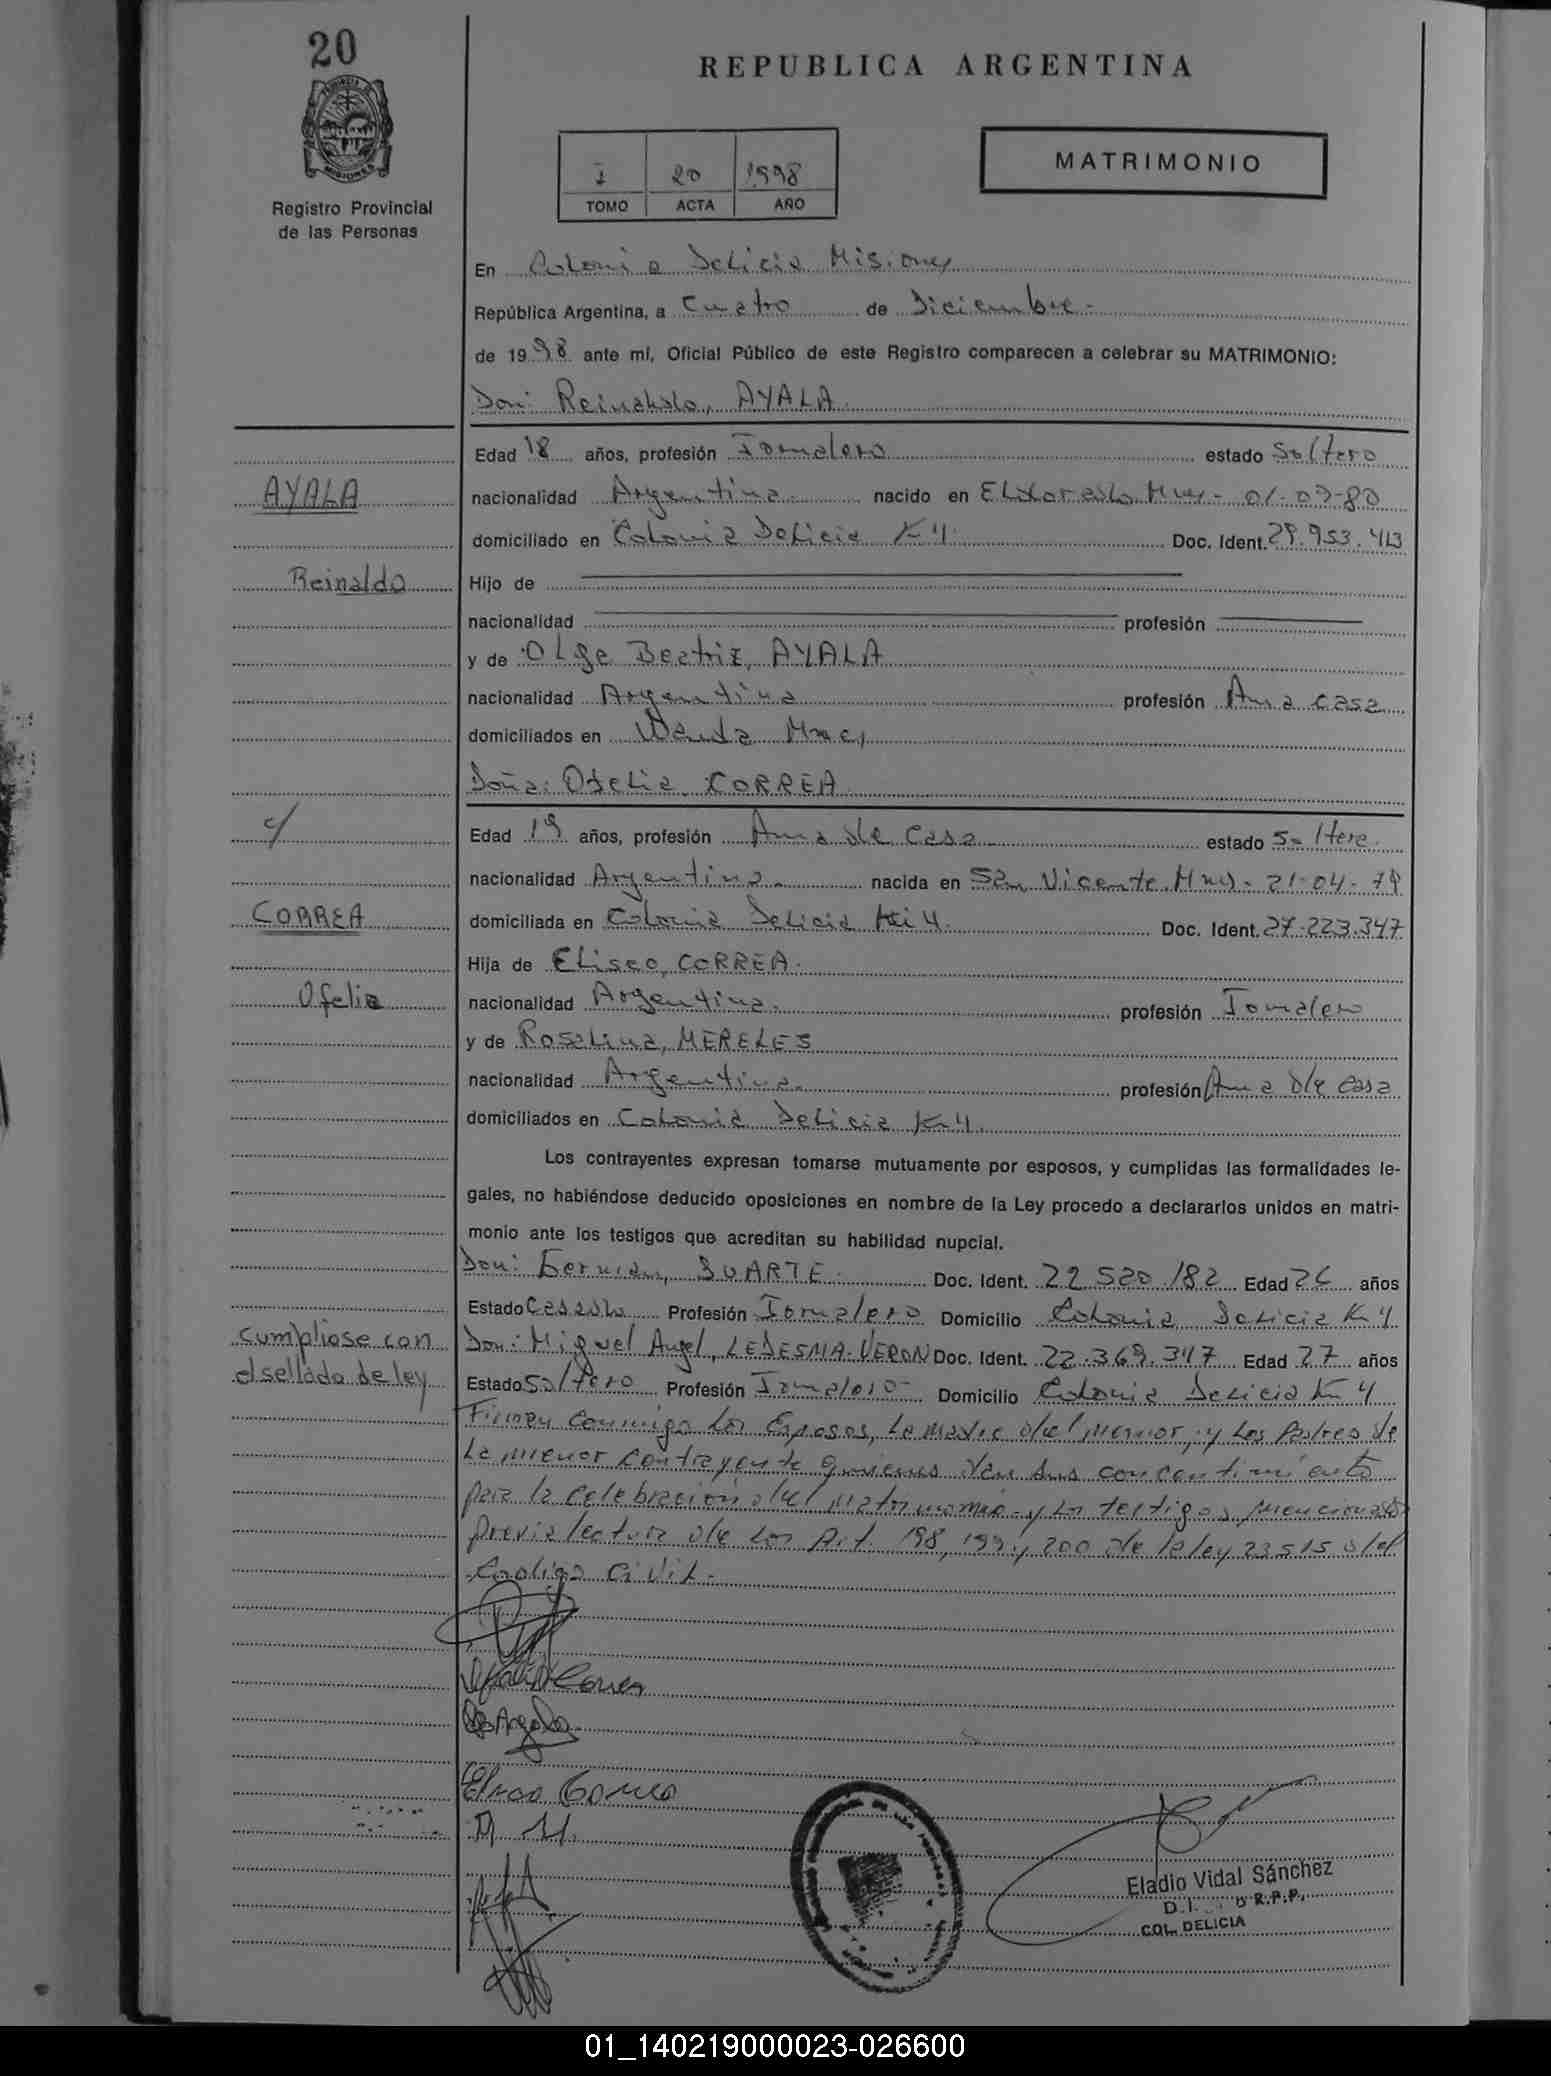 20
REPUBLICA ARGENTINA
PROVINCIA DE
MISIONES
Registro Provincial
de las Personas
I 20 1998
TOMO ACTA AÑO
MATRIMONIO
En Colonia Delicia Misiones
República Argentina, a Cuatro de Diciembre -
de 1998 ante mí, Oficial Público de este Registro comparecen a celebrar su MATRIMONIO:
Don: Reinaldo, AYALA.
Edad 18 años, profesión Jornalero estado Soltero
AYALA
nacionalidad Argentina. nacido en Eldorado Mnes- 01-09-80
domiciliado en Colonia Delicia K 4. Doc. Ident. 29.953.413
Reinaldo
Hijo de
nacionalidad profesión
y de Olga Beatriz, AYALA
nacionalidad Argentina profesión Ama casa
domiciliados en Wanda Mnes,
Doña: Ofelia, CORREA.
c/
Edad 19 años, profesión Ama de Casa estado Soltera.
nacionalidad Argentina. nacida en San Vicente Mnes- 21-04-79
CORREA
domiciliada en Colonia Delicia Km 4. Doc. Ident. 27.223.347
Hija de Eliseo, CORREA.
Ofelia
nacionalidad Argentina. profesión Jornalero
y de Rosalina, MERELES
nacionalidad Argentina. profesión Ama de Casa
domiciliados en Colonia Delicia Km 4.
Los contrayentes expresan tomarse mutuamente por esposos, y cumplidas las formalidades le-
gales, no habiéndose deducido oposiciones en nombre de la Ley procedo a declararlos unidos en matri-
monio ante los testigos que acreditan su habilidad nupcial.
Don: German, DUARTE. Doc. Ident. 22 520.182 Edad 26 años
Estado Casado Profesión Jornalero Domicilio Colonia Delicia K 4
Cumpliose con
el sellado de ley
Don: Miguel Angel, LEDESMA-VERON Doc. Ident. 22.369.347 Edad 27 años
Estado Soltero Profesión Jornalero- Domicilio Colonia Delicia Km 4
Firman conmigo los Esposos, la madre del menor, y los Padres de
la menor contrayente quienes dan sus concentimiento
para la celebración del matrimonio- y los testigos mencionados
previa lectura de los Art. 198, 199 y 200 de la ley 23515 del
Codigo Civil.-
Correa
Eliseo Correa
R. M.
Eladio Vidal Sánchez
R.P.P.
COL. DELICIA
01_140219000023-026600